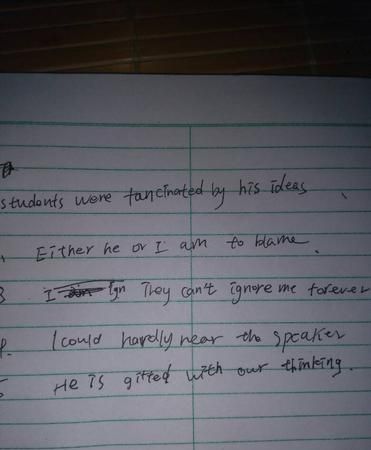 students were fancinated by his ideas
Either he or I am to blame.
3 I They can't ignore me forever
4. I could hardly hear the speaker
5 He is gifted with our thinking.